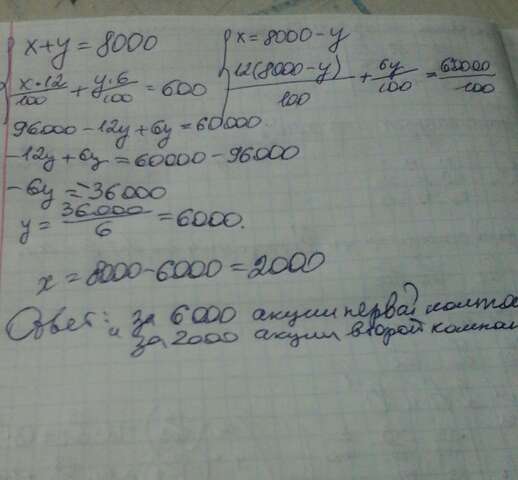 x+y=8000
x·12/100 + y·6/100 = 600
x=8000-y
12(8000-y)/100 + 6y/100 = 60000/100
96000-12y+6y=60000.
-12y+6y=60000-96000
-6y=-36000
y=36000/6=6000.
x=8000-6000=2000
Ответ: за 6000 акции первой
и за 2000 акции второй